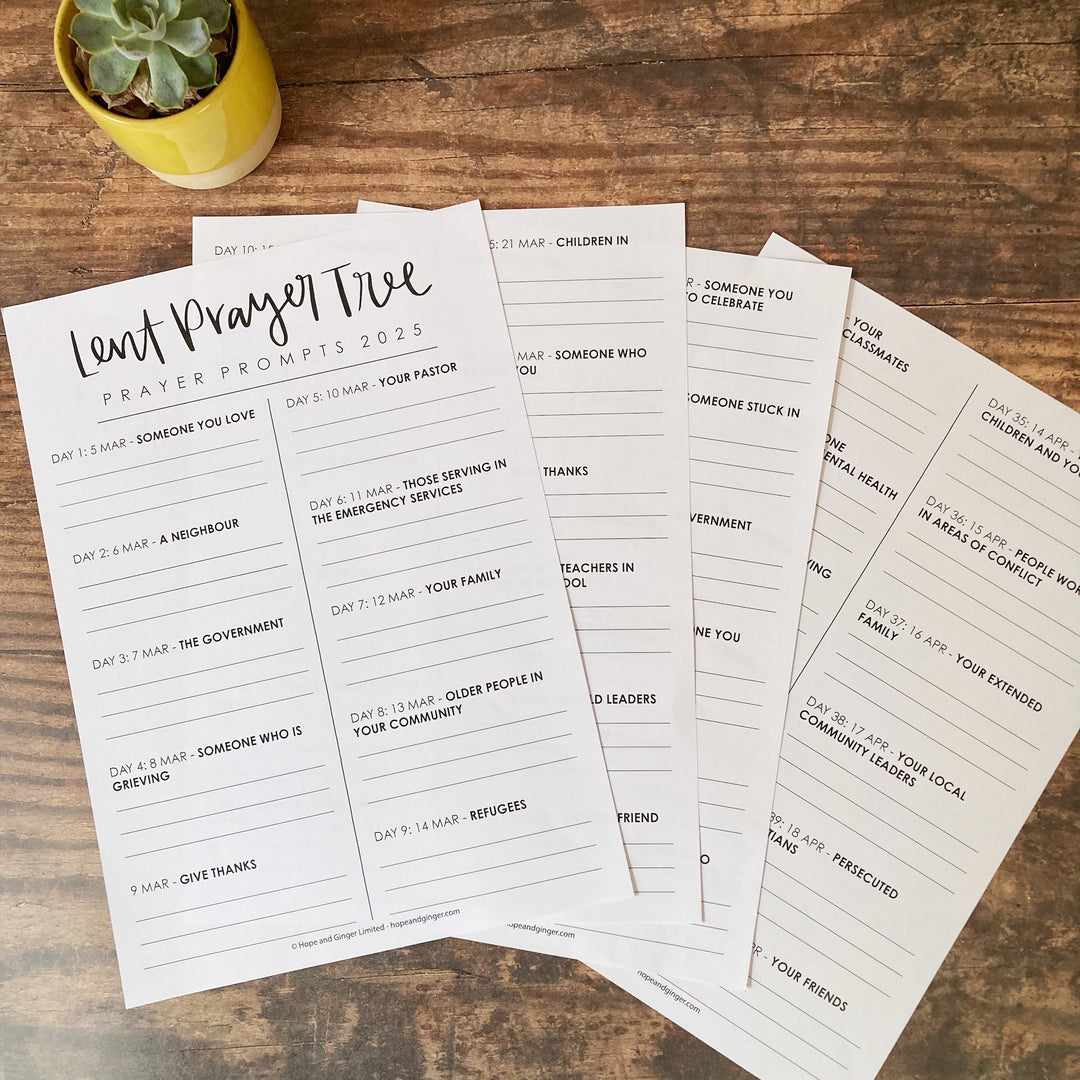 Lent Prayer Tree
PRAYER PROMPTS 2025
DAY 1: 5 MAR - SOMEONE YOU LOVE
DAY 2: 6 MAR - A NEIGHBOUR
DAY 3: 7 MAR - THE GOVERNMENT
DAY 4: 8 MAR - SOMEONE WHO IS
GRIEVING
9 MAR - GIVE THANKS
DAY 5: 10 MAR - YOUR PASTOR
DAY 6: 11 MAR - THOSE SERVING IN
THE EMERGENCY SERVICES
DAY 7: 12 MAR - YOUR FAMILY
DAY 8: 13 MAR - OLDER PEOPLE IN
YOUR COMMUNITY
DAY 9: 14 MAR - REFUGEES
© Hope and Ginger Limited - hopeandginger.com
DAY 10:
5: 21 MAR - CHILDREN IN
MAR - SOMEONE WHO
YOU
THANKS
TEACHERS IN
OOL
LD LEADERS
FRIEND
hopeandginger.com
R - SOMEONE YOU
TO CELEBRATE
SOMEONE STUCK IN
VERNMENT
ONE YOU
O
- YOUR
CLASSMATES
ONE
ENTAL HEALTH
VING
DAY 35: 14 APR -
CHILDREN AND YO
DAY 36: 15 APR - PEOPLE WOR
IN AREAS OF CONFLICT
DAY 37: 16 APR - YOUR EXTENDED
FAMILY
DAY 38: 17 APR - YOUR LOCAL
COMMUNITY LEADERS
39: 18 APR - PERSECUTED
TIANS
PR - YOUR FRIENDS
hopeandginger.com